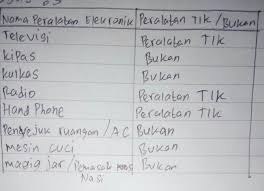 Nama Peralatan Elektronik Peralatan TIk /Bukan
Televisi Peralatan TIk
kipas Bukan
kulkas Bukan
Radio Peralatan TIk
Hand Phone Peralatan TIk
Penyejuk ruangan /AC Bukan
mesin cuci Bukan
magig jar/Pemasak Bukan
Nasi